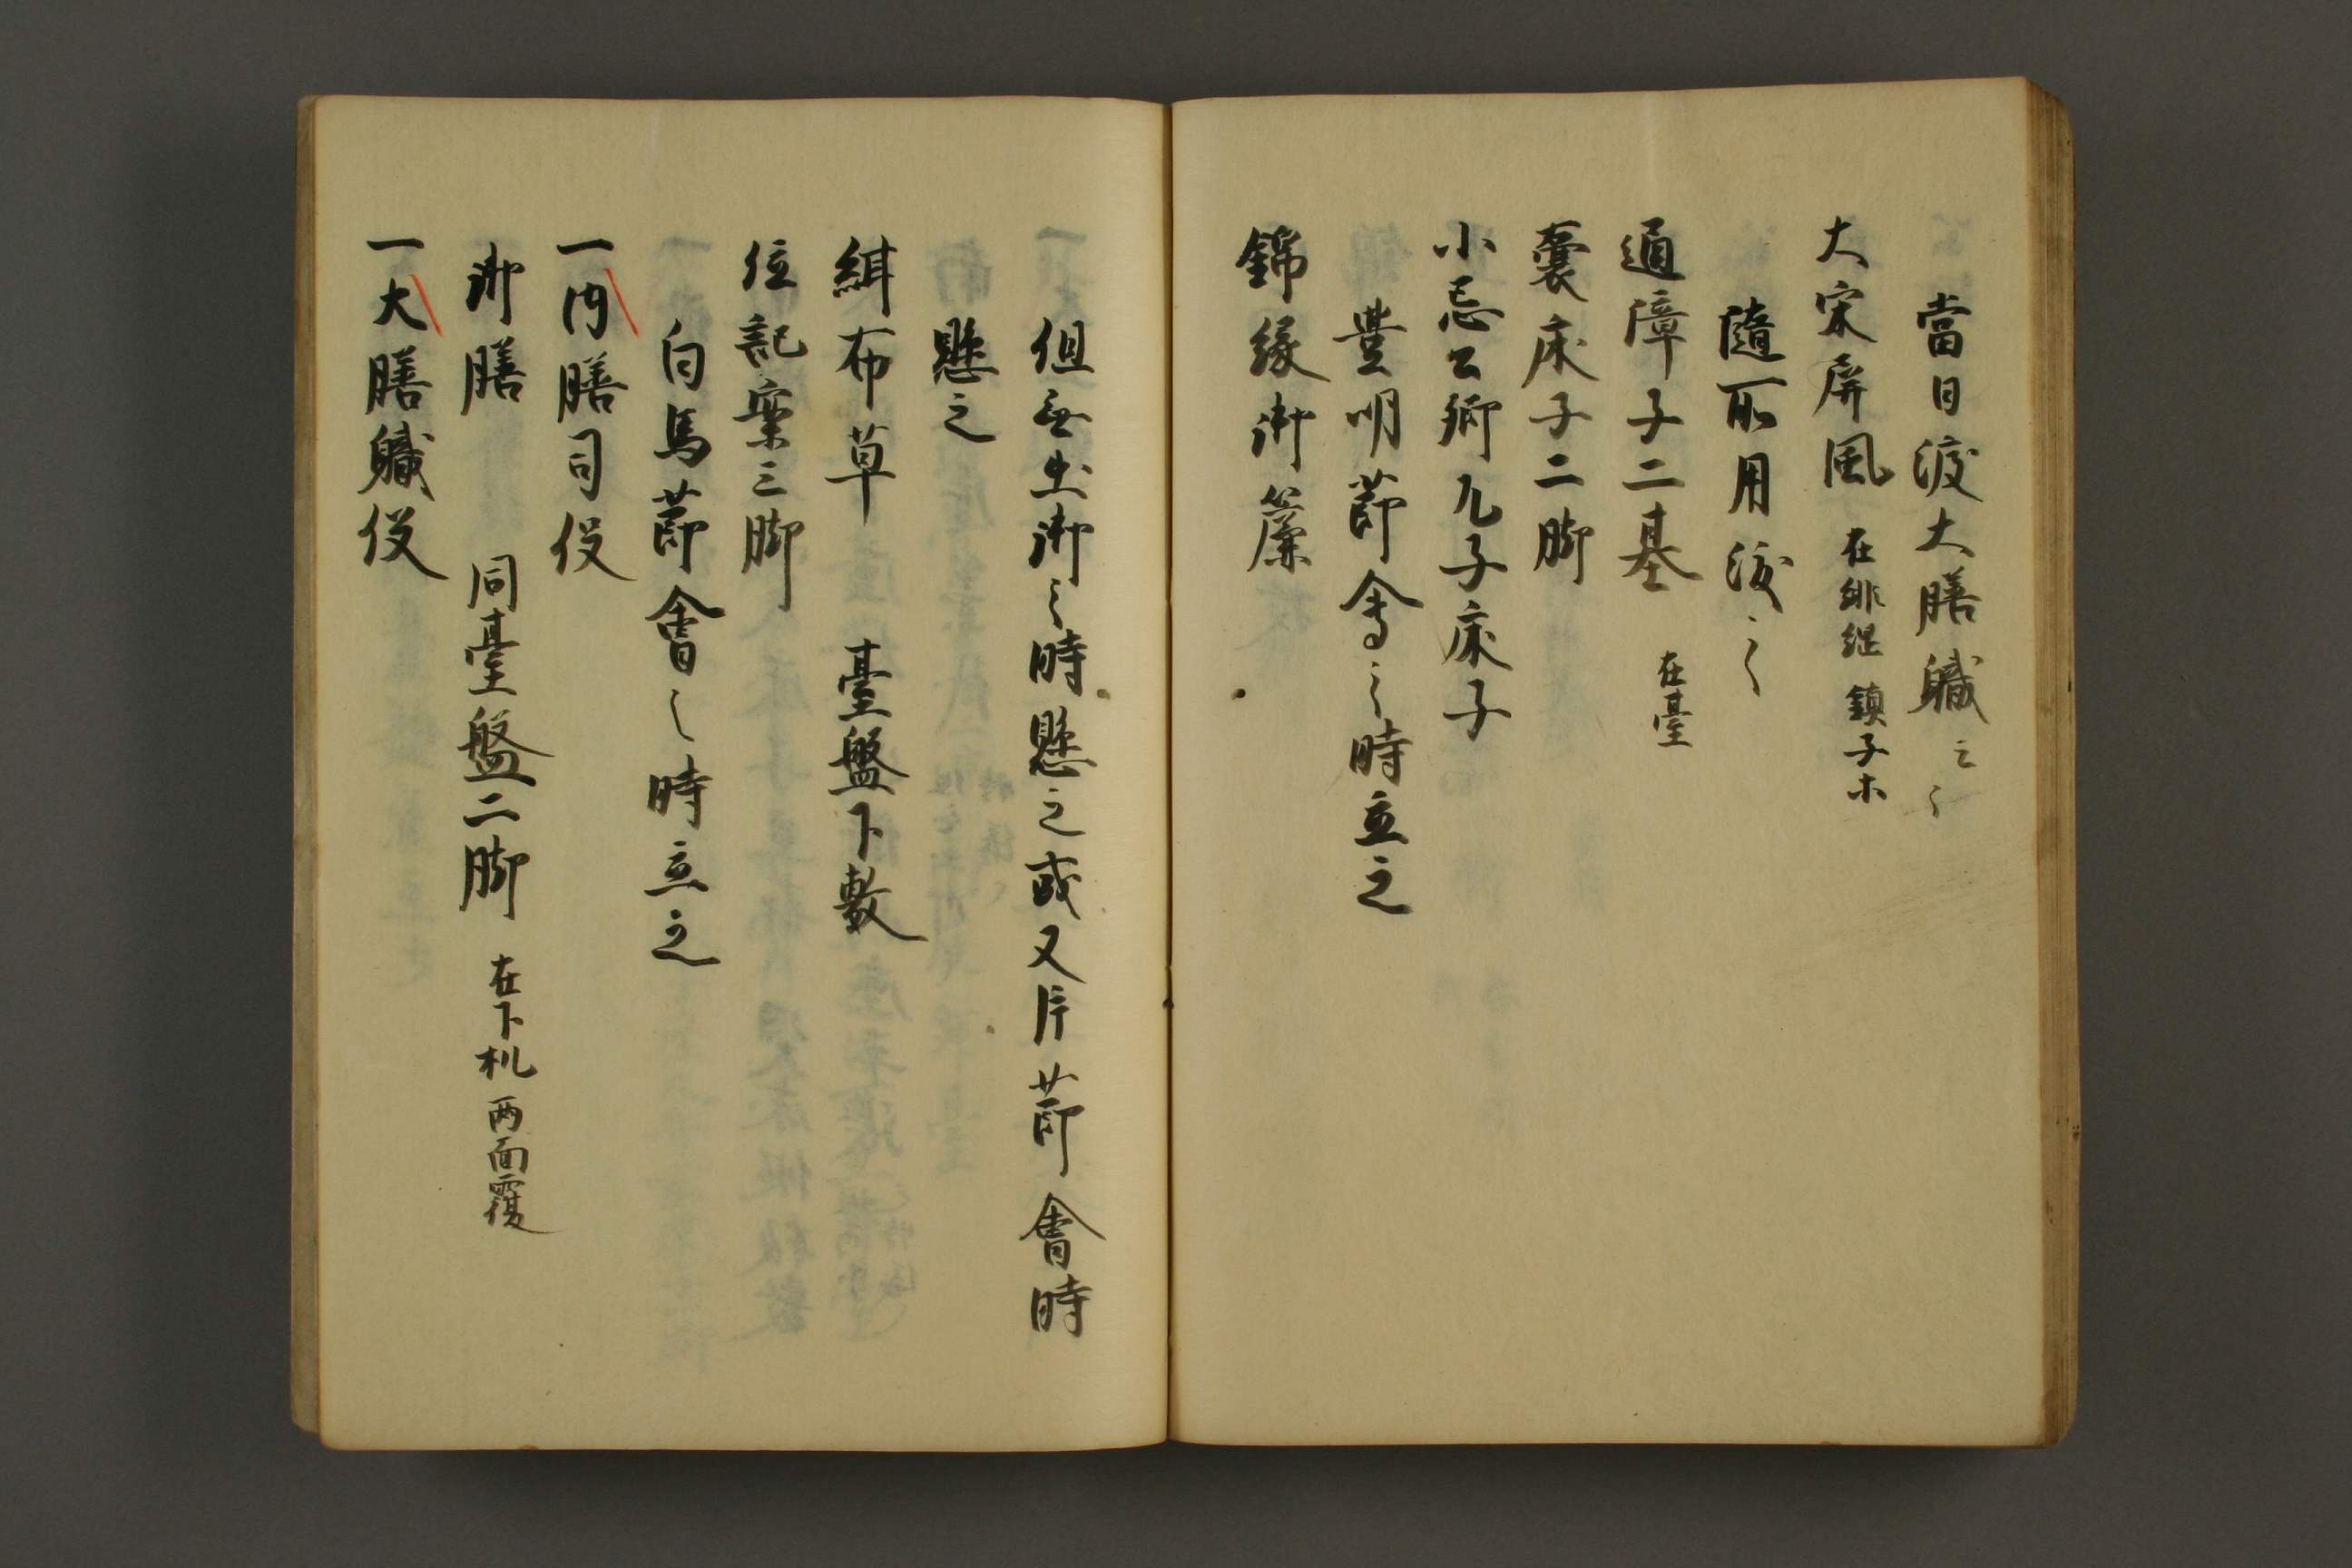 當日渡大膳軄云々
大宋屏風 在緋䋄 鎮子木
隨所用渡之
通障子二基 在臺
囊床子二脚
小忌公卿兀子床子
豊明莭會之時立之
錦縁御簾
但無出御之時懸之或又片莭會時
懸之
緝布草 臺盤下敷
位記案三脚
白馬莭會之時立之
一内膳司伇
御膳 同臺盤二脚 在下机 両面覆
一大膳軄伇